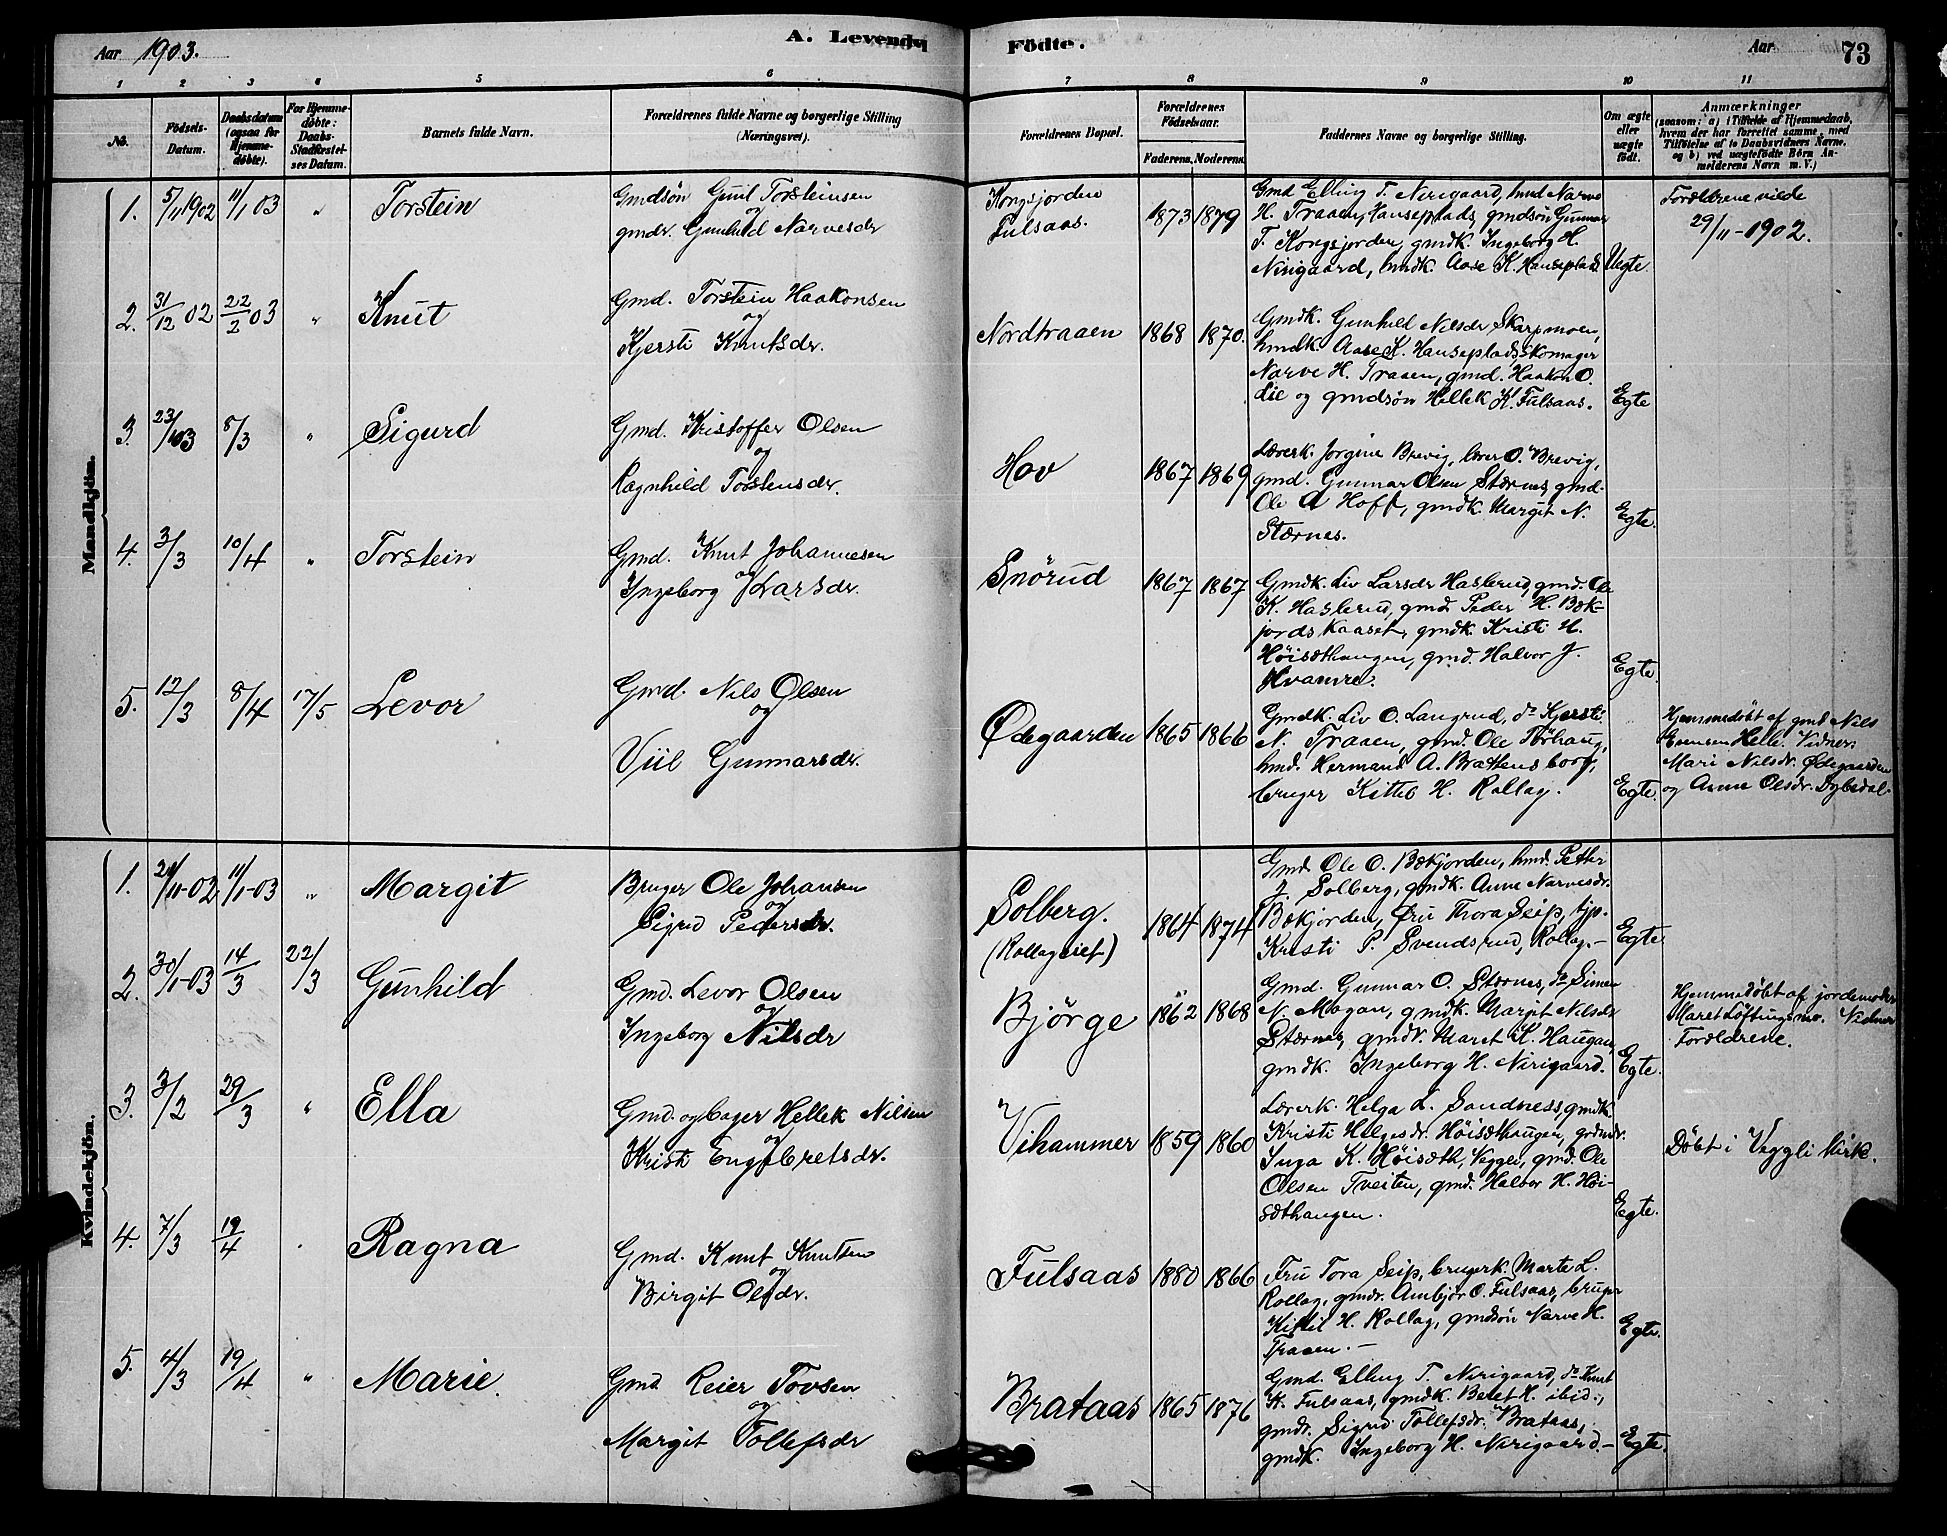 Aar 1903.
A. Levende
Födte.
Aar
73
1 2 3 4 5 6 7 8 9 10 11
No.
Födsels-
Datum.
Daabsdatum
(ogsaa for
Hjemme-
døbte).
For Hjemme-
døbte:
Daabs-
Stadfæstel-
ses Datum.
Barnets fulde Navn.
Forældrenes fulde Navne og borgerlige Stilling
(Næringsvei).
Forældrenes Bopæl.
Forældrenes
Födselsaar.
Faderens. Moderens.
Faddernes Navne og borgerlige Stilling.
Om ægte
eller
uægte
födt.
Anmærkninger
(saasom: a) i Tilfælde af Hjemmedaab,
hvem der har forrettet samme, med
Tilföielse af to Daabsvidners Navne,
og b) ved uægtefödte Börn An-
melderens Navn m. V.)
Mandkjön.
1. 5/11 1902 11/1 03 " Torstein
Gmdsön Gunl Torsteinsen
og
gmdr. Gunhild Narvesdr
Kongsjorden
Fulsaas.
1873 1879
Gmd Elling T. Nirigaard, hmd Narve
H. Traaen, Hanseplads, gmdsön Gunnar
T. Kongsjorden, gmdk. Ingeborg H.
Nirigaard, hmdk. Aase K. Hanseplads
Uegte.
Forældrene vilde
29/11-1902.
2. 31/12 02 22/2 03 " Knut
Gmd. Torstein Haakonsen
og
Kjersti Knutsdr.
Nordtraaen 1868 1870.
Gmdk. Gunhild Nilsdr Skarpmoen,
hmdk. Aase K. Hanseplads, skomager
Narve H. Traaen, gmd. Haakon O.
Lie og gmdsön Hellek K. Fulsaas.
Egte
3. 23/1 03 8/3 " Sigurd
Gmd. Kristoffer Olsen
og
Ragnhild Torstensdr.
Hov 1867 1869
Lærerk. Jorgine Brevig, lærer O. Brevig,
gmd. Gunnar Olsen Stærnes, gmd.
Ole A Hoff, gmdk. Margit N.
Stærnes.
Egte.
4. 3/3 10/4 " Torstein
Gmd. Knut Johannesen
og
Ingeborg Larsdr.
Snörud 1867 1867
Gmdk. Liv Larsdr Haslerud, gmd. Ole
K. Haslerud, gmd. Peder H. Bæk-
jordskaaset, gmdk. Kristi H.
Höisæthaugen, gmd. Halvor J.
Hvamre.
Egte.
5. 12/3 8/4 17/5 Levor
Gmd. Nils Olsen
og
Viil Gunnarsdr.
Ødegaarden 1865 1866
Gmdk. Liv O. Langrud, do Kjersti
N. Traaen, gmd. Ole Törhaug,
hmd. Hermand A. Brattensborg,
bruger Kittil H. Rollag.
Egte.
Hjemmedöbt af gmd Nils
Evensen Helle. Vidner:
Mari Nilsdr. Ødegaarden
og Anne Olsdr. Dybedal.
Kvindekjön.
1. 11-02 11/1-03 " Margit
Bruger Ole Johansen
og
Sigrid Pedersdr.
Solberg.
(Rollageiet)
1864 1874
Gmd. Ole O. Bækjorden, hmd. Petter
J. Solberg, gmdk. Anne Narvesdr.
Bækjorden, Fru Thora Seip, tjp.
Kristi P. Svendsrud, Rollag.-
Egte
2. 30/1-03 14/3 22/3 Gunhild
Gmd. Levor Olsen
og
Ingeborg Nilsdr
Björge 1862 1868
Gmd. Gunnar O. Stærnes, do Simen
N. Mogan, gmdk. Margit Nilsdr
Stærnes, gmdr. Maret K. Haugan,
gmdk. Ingeborg H. Nirigaard.
Egte.
Hjemmedöbt af jordemoder
Maret Löftingsmo. Vidner
Forældrene.
3. 3/2 29/3 " Ella
Gmd. og bager Hellek Nilsen
og
Kristi Engebretsdr.
Vihammer 1859 1860
Lærerk. Helga L. Sandness, gmdk.
Kristi Helgesdr. Höisæthaugen, gmdr.
Inga K. Höisæth, Veggli, gmd. Ole
Olsen Tveiten, gmd. Halvor H. Höi-
sæthaugen.
Egte.
Döbt i Veggli kirk.
4. 7/3 19/4 Ragna
Gmd. Knut Knutsen
og
Birgit Olsdr.
Fulsaas 1880 1866
Fru Tora Seip, brugerk. Marte L.
Rollag, gmdr. Ambjör O. Fulsaas, bruger
Kittil H. Rollag, gmdsön Narve H.
Traaen.-
Egte.
5. 4/3 19/4 " Marie.
Gmd Reier Tovsen
og
Margit Tollefsdr
Brataas 1865 1876
Gmd. Elling T. Nirigaard, do Knut
K. Fulsaas, gmdk. Beret H. ibid.,
gmdr. Sigrid Tollefsdr. Brataas,
gmdk. Ingeborg H. Nirigaard.-
Egte.